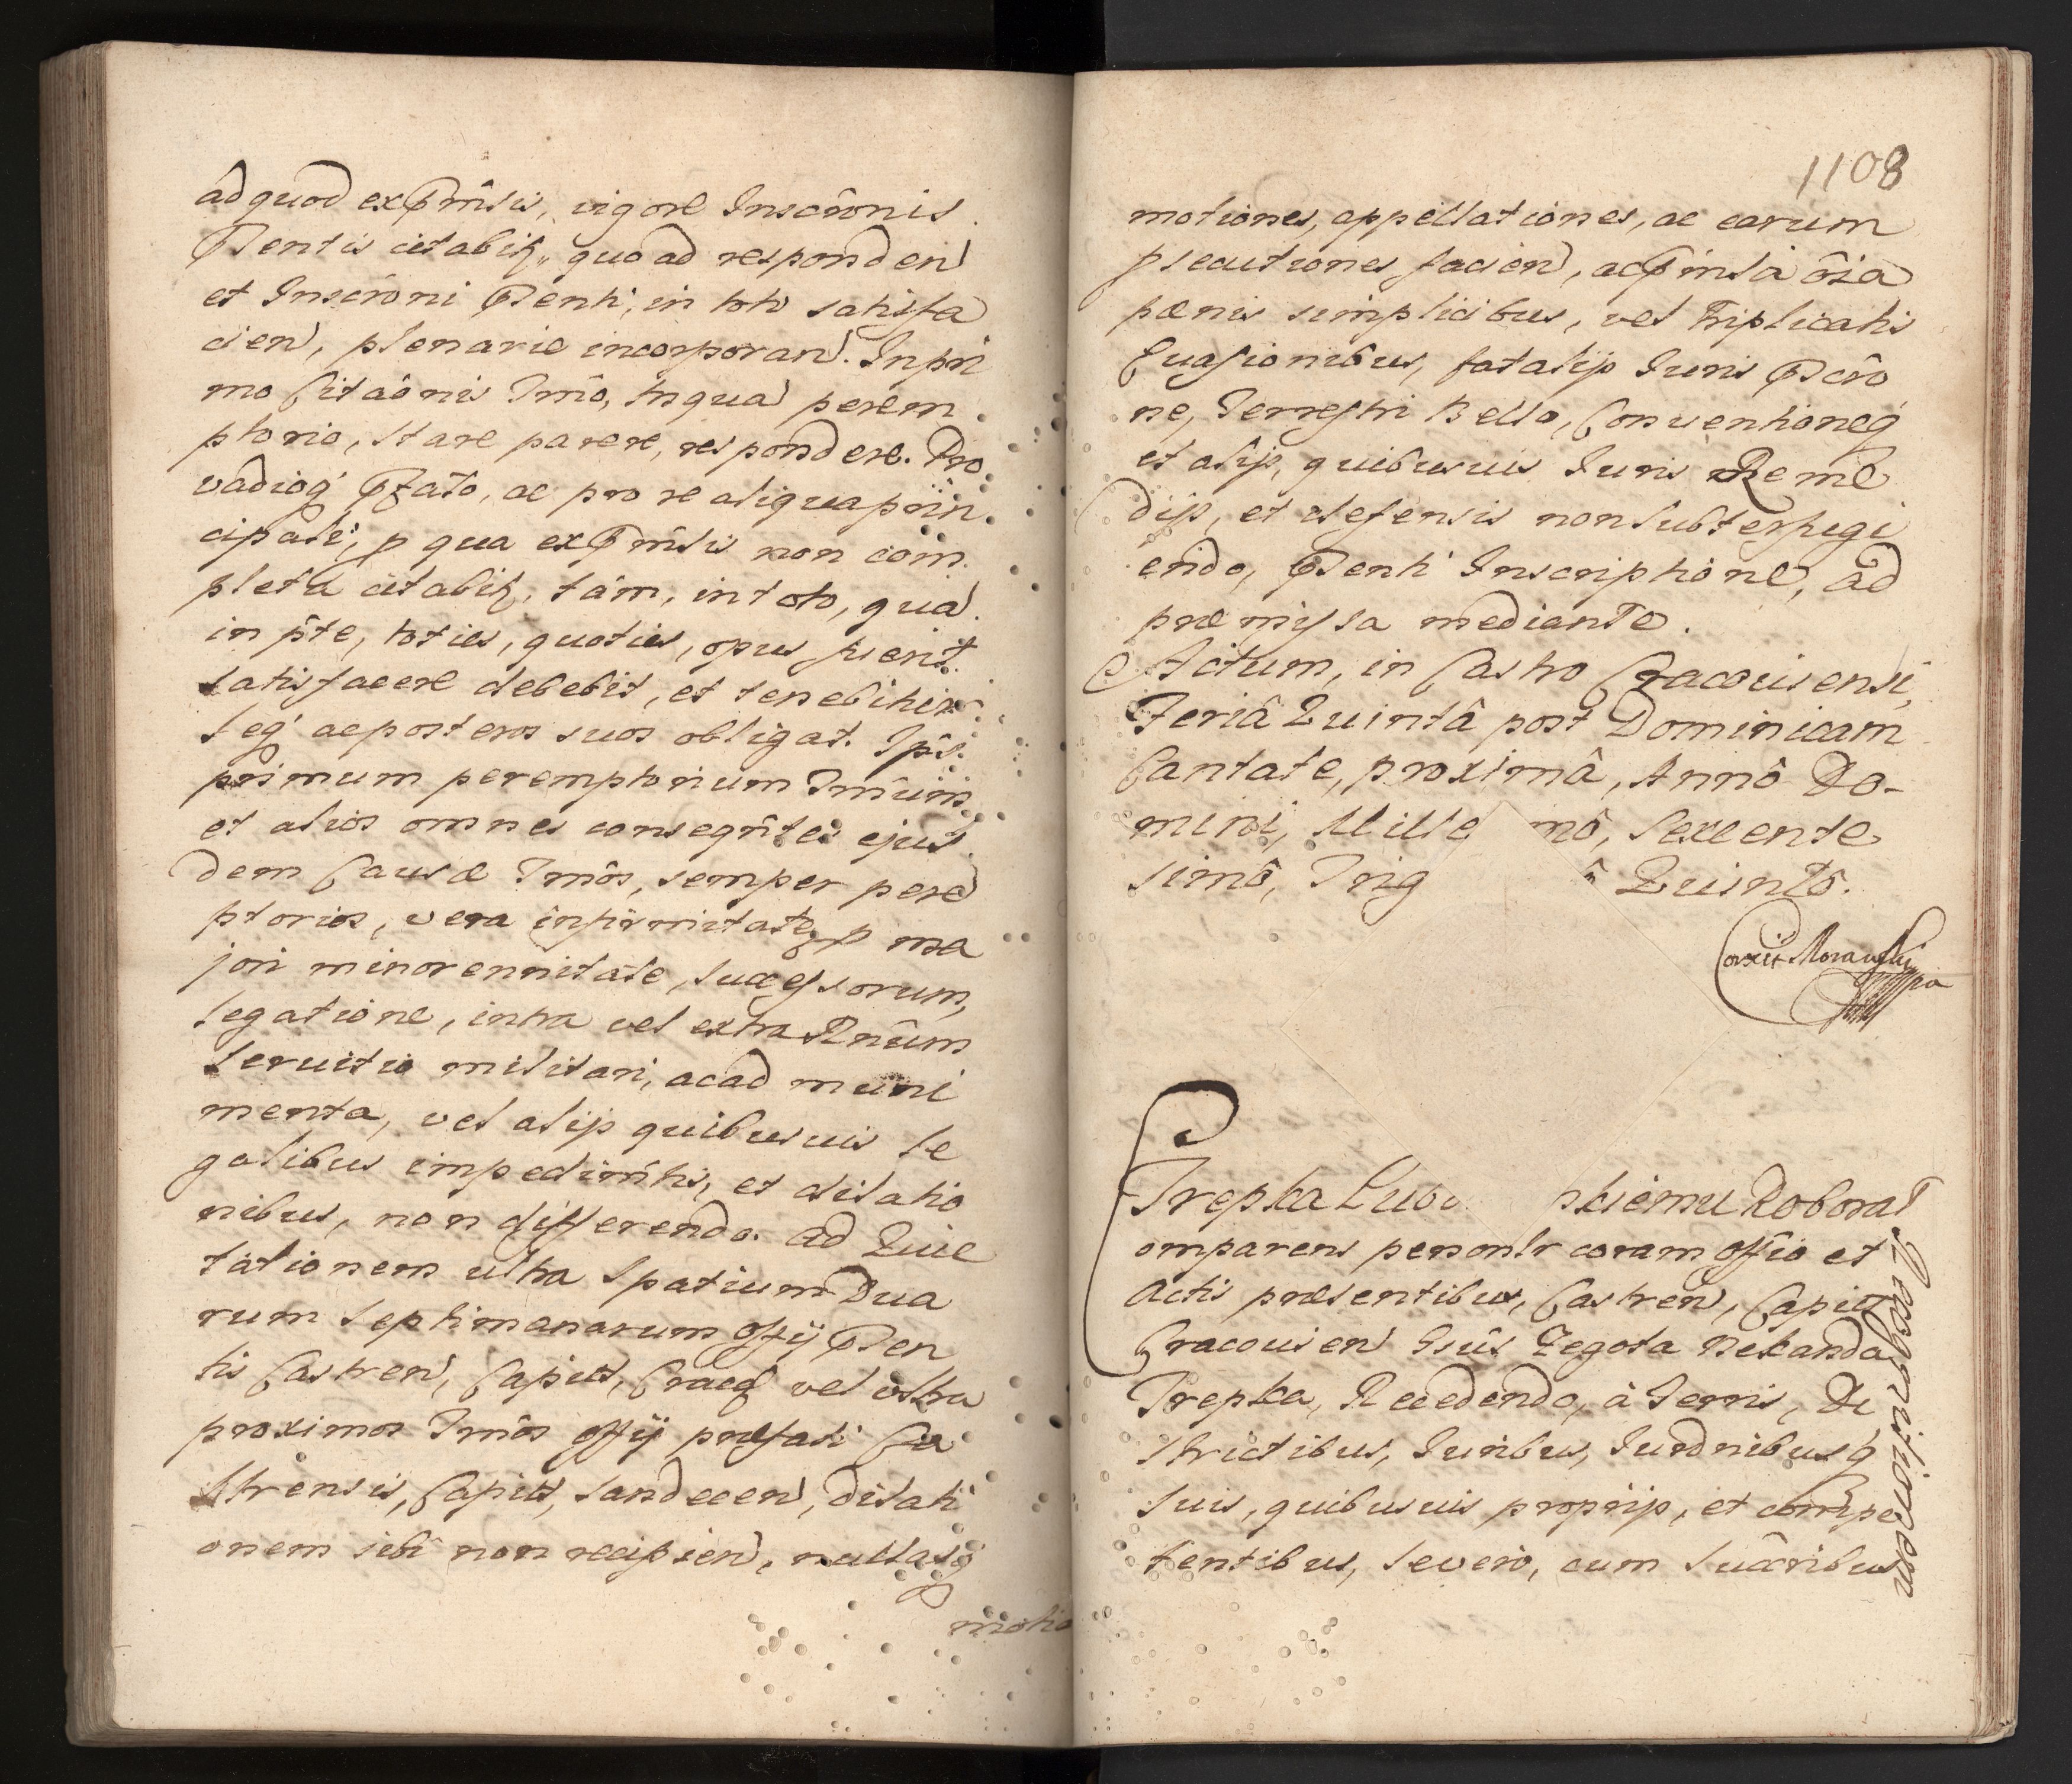 ad quod ex præmis̃sis, vigore Inscrõnis
Pñtis citabitr, quo ad responden̄
et Inscrõni Pñti, in toto satisfa
cien̄, plenarie incorporan̄. In pri
mo Citaõnis Tmõ, tnquā perem
ptorio, stare parere, respondere. Pro
vadioq́ Pfato, ac pro re aliqua prin
cipali, p qua ex præmis̃sis non com
pleta citabitr, tam, in toto, quā
in pte, toties, quoties, opus fuerit.
satisfacere debebit, et tenebitur
seq́ ac posteros suos obligat. Ips̃
primum peremptorium Tmũm
et alios omnes conseqñtes ejus
dem Causæ Tmõs, semper perē
ptorios, vera infirmitate, p ma
jori minorennitate, successorum,
legatione, intra vel extra Rñum
seruitio militari, ac ad muni
menta, vel alijs quibusuis le
galibus impedim̃tis, et dilatio
nibus, non differendo. ad Quie
tationem ultra Spatium Dua
rum Septimanarum offij Pñ
tis Castren̄, Capitt, Cracq́ vel ultra
proximos Tmõs offij præfati Ca
strensis, Capitt, Sandecen̄, dilati
onem sibi non recipien̄, nullasq́
motio
1108
motiones, appellationes, ac earum
psecutiones facien̄, ac præmis̃sa õia
pœnis simplicibus, vel triplicatis
Euasionibus, fatalijs Iuris Pscrõ
ne, Terrestri Bello, Conuentioneq́
et alijs, quibusuis Iuris Reme
dijs, et defensis non subterfugi
endo, Pñti Inscriptione, ad
præmissa mediante.
Actum, in Castro Cracouiensi,
Feriâ Quintâ post Dominicam
Cantate, proximâ, Annô Do-
mini, Mille mô, Sexcente
simô, Trig ô Quintô.
Corxit Morawski
mpa
Trepka Lubo skiemu Roborat
Recognitionem
omparens personlr coram offio et
Actis præsentibus, Castren̄, Capitt
Cracouien̄ Gñs Zegota Nekanda
Trepka, Recedendo, à Terris, Di
strictibus, Iuribus, Iurdnibusq́
suis, quibusuis proprijs, et compe
tentibus, severo, cum succribus